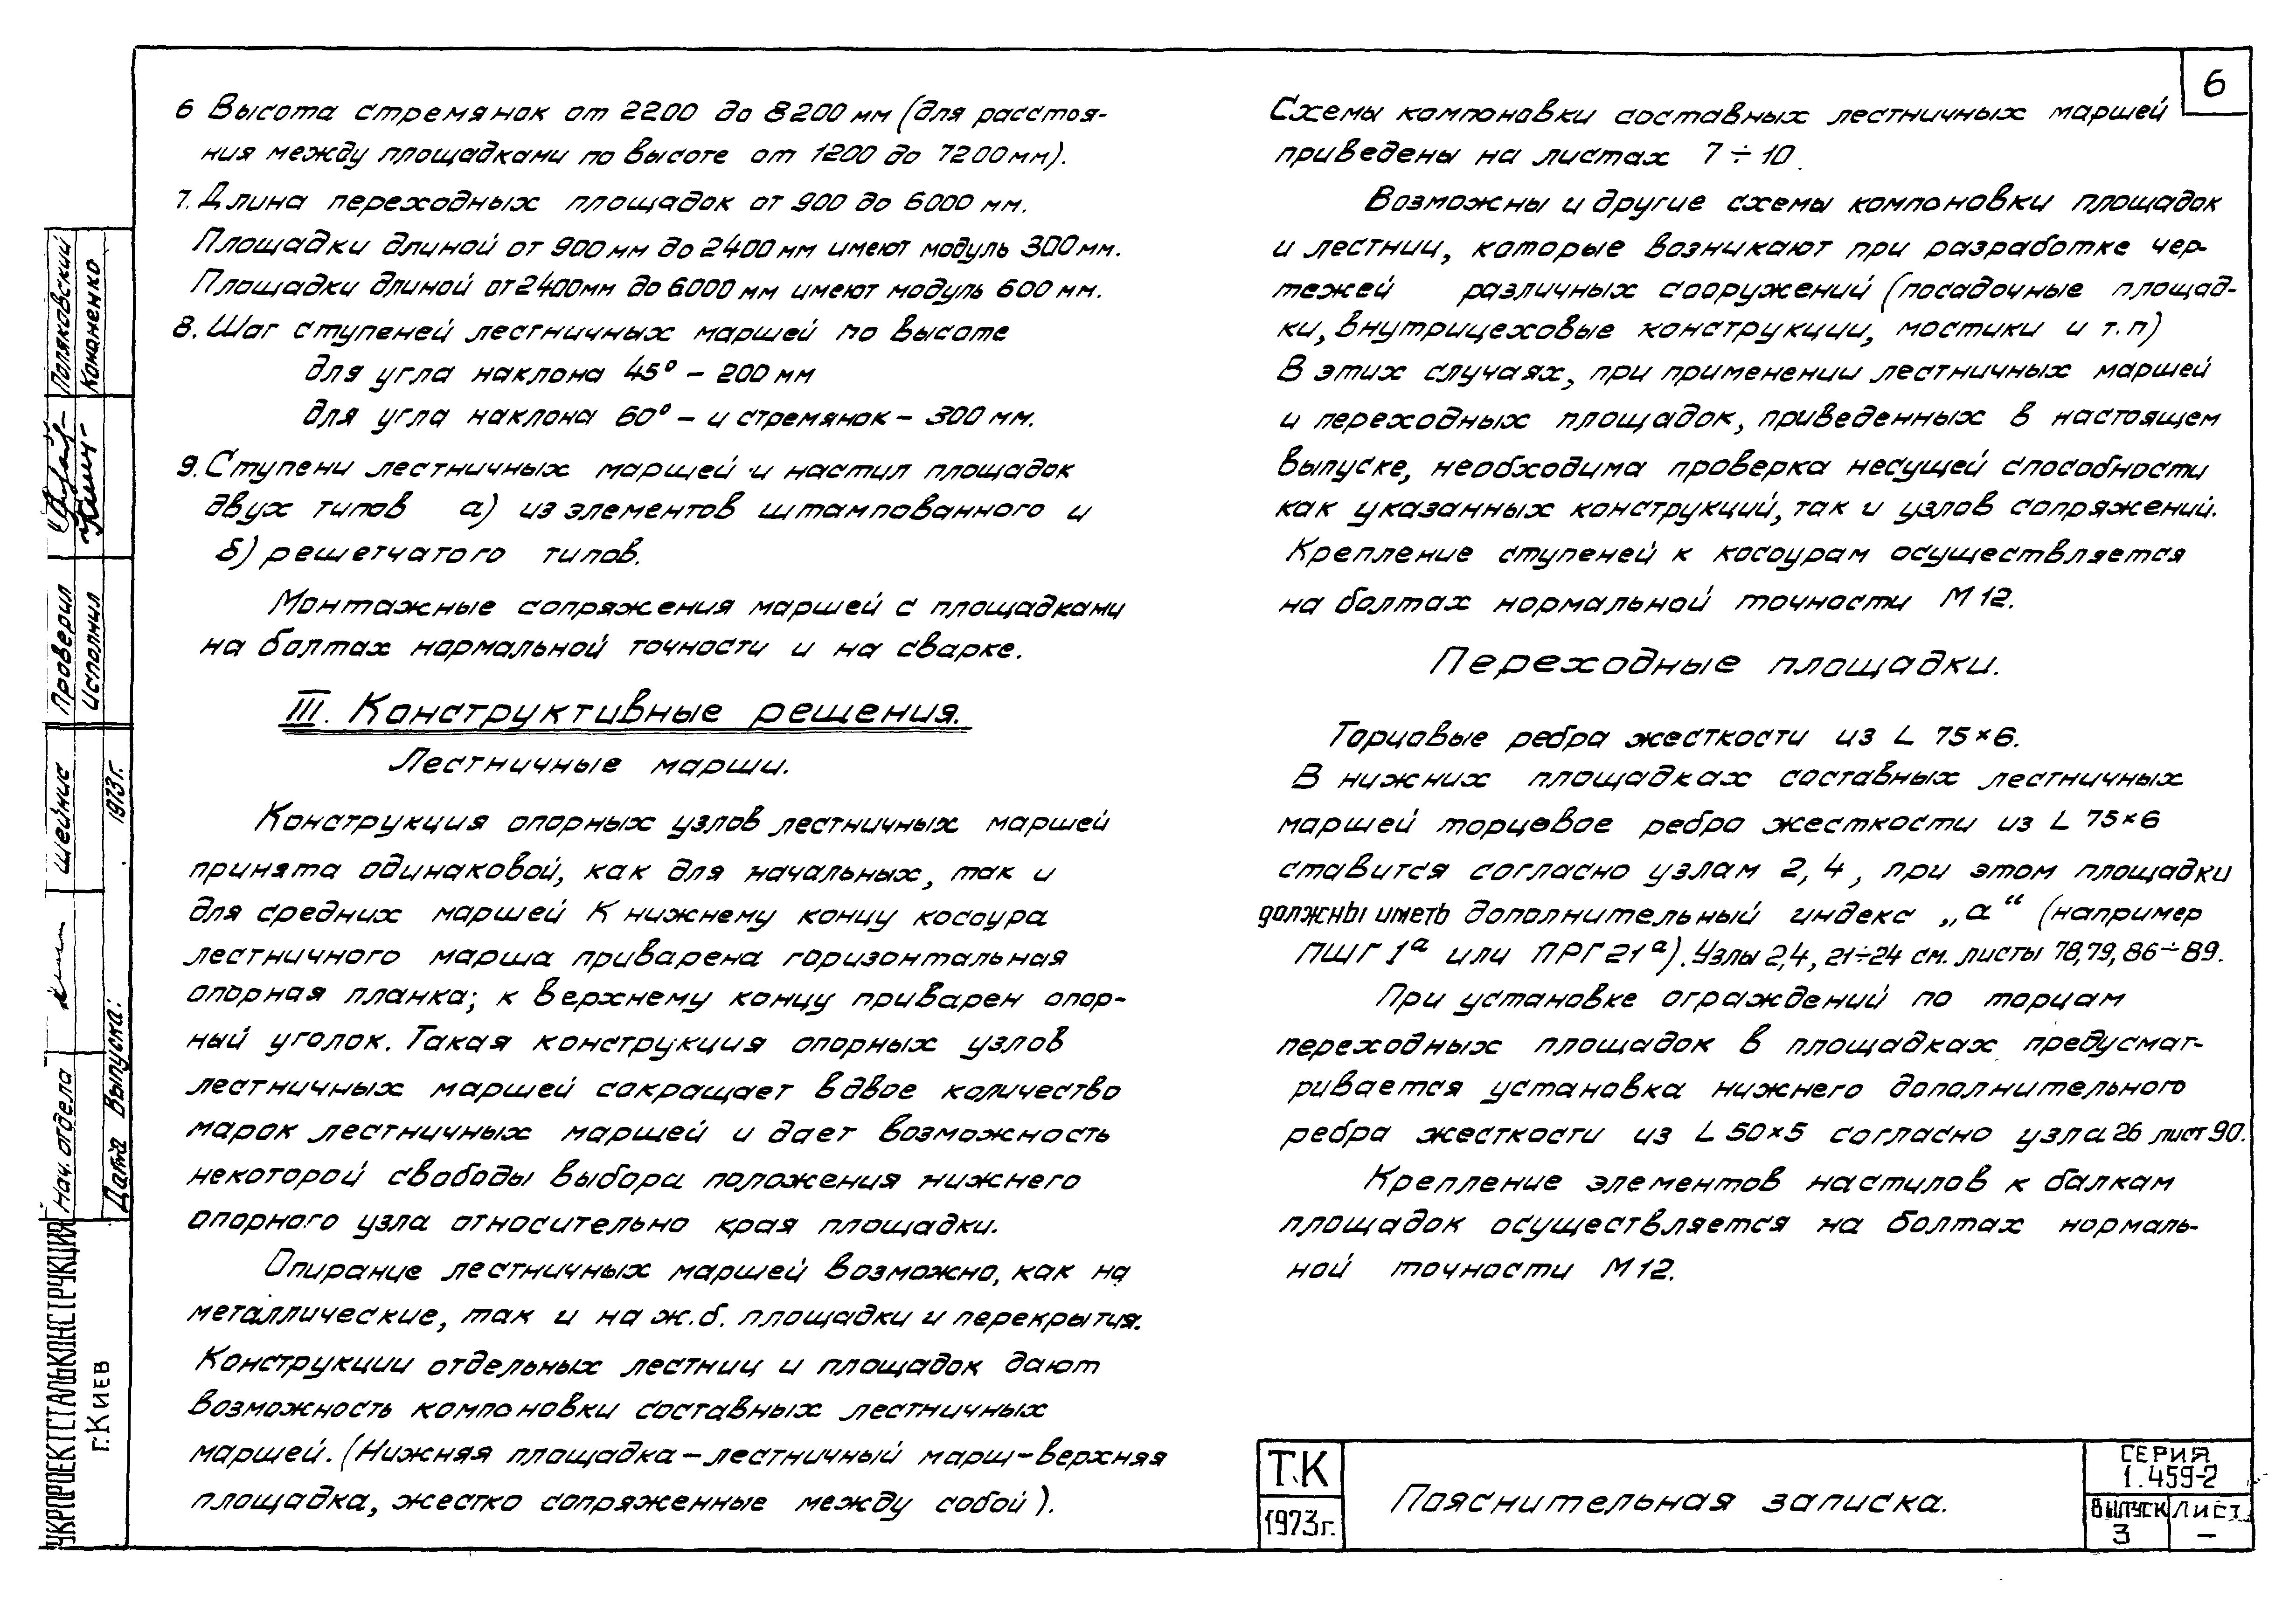 6
6 Высота стремянок от 2200 до 8200 мм (для расстоя-
ния между площадками по высоте от 1200 до 7200 мм).
7. Длина переходных площадок от 900 до 6000 мм.
Площадки длиной от 900 мм до 2400 мм имеют модуль 300 мм.
Площадки длиной от 2400мм до 6000 мм имеют модуль 600 мм.
8. Шаг ступеней лестничных маршей по высоте
для угла наклона 45° – 200 мм
для угла наклона 60° – и стремянок – 300 мм.
9. Ступени лестничных маршей и настил площадок
двух типов а) из элементов штампованного и
б) решетчатого типов.
Монтажные сопряжения маршей с площадками
на болтах нормальной точности и на сварке.
III. Конструктивные решения.
Лестничные марши.
Конструкция опорных узлов лестничных маршей
принята одинаковой, как для начальных, так и
для средних маршей К нижнему концу косоура
лестничного марша приварена горизонтальная
опорная планка; к верхнему концу приварен опор-
ный уголок. Такая конструкция опорных узлов
лестничных маршей сокращает вдвое количество
марок лестничных маршей и дает возможность
некоторой свободы выбора положения нижнего
опорного узла относительно края площадки.
Опирание лестничных маршей возможно, как на
металлические, так и на ж.б. площадки и перекрытия.
Конструкции отдельных лестниц и площадок дают
возможность компоновки составных лестничных
маршей. (Нижняя площадка – лестничный марш – верхняя
площадка, жестко сопряженные между собой).
Схемы компоновки составных лестничных маршей
приведены на листах 7 ÷ 10.
Возможны и другие схемы компоновки площадок
и лестниц, которые возникают при разработке чер-
тежей различных сооружений (посадочные площад-
ки, внутрицеховые конструкции, мостики и т.п)
В этих случаях, при применении лестничных маршей
и переходных площадок, приведенных в настоящем
выпуске, необходима проверка несущей способности
как указанных конструкций, так и узлов сопряжений.
Крепление ступеней к косоурам осуществляется
на болтах нормальной точности М 12.
Переходные площадки.
Торцовые ребра жесткости из L 75×6.
В нижних площадках составных лестничных
маршей торцовое ребро жесткости из L 75×6
ставится согласно узлам 2, 4, при этом площадки
должны иметь дополнительный индекс „а“ (например
ПШГ 1ᵃ или ПРГ 21ᵃ). Узлы 2,4, 21÷24 см. листы 78,79, 86÷89.
При установке ограждений по торцам
переходных площадок в площадках предусмат-
ривается установка нижнего дополнительного
ребра жесткости из L 50×5 согласно узла 26 лист 90.
Крепление элементов настилов к балкам
площадок осуществляется на болтах нормаль-
ной точности М 12.
ТК
1973г.
Пояснительная записка.
СЕРИЯ
1.459-2
Выпуск
3
Лист
–
УКРПРОЕКТСТАЛЬКОНСТРУКЦИЯ
г. Киев
Нач. отдела
Шейнис
Дата выпуска:
1973г.
Проверил
Поляковский
Исполнил
Кононенко